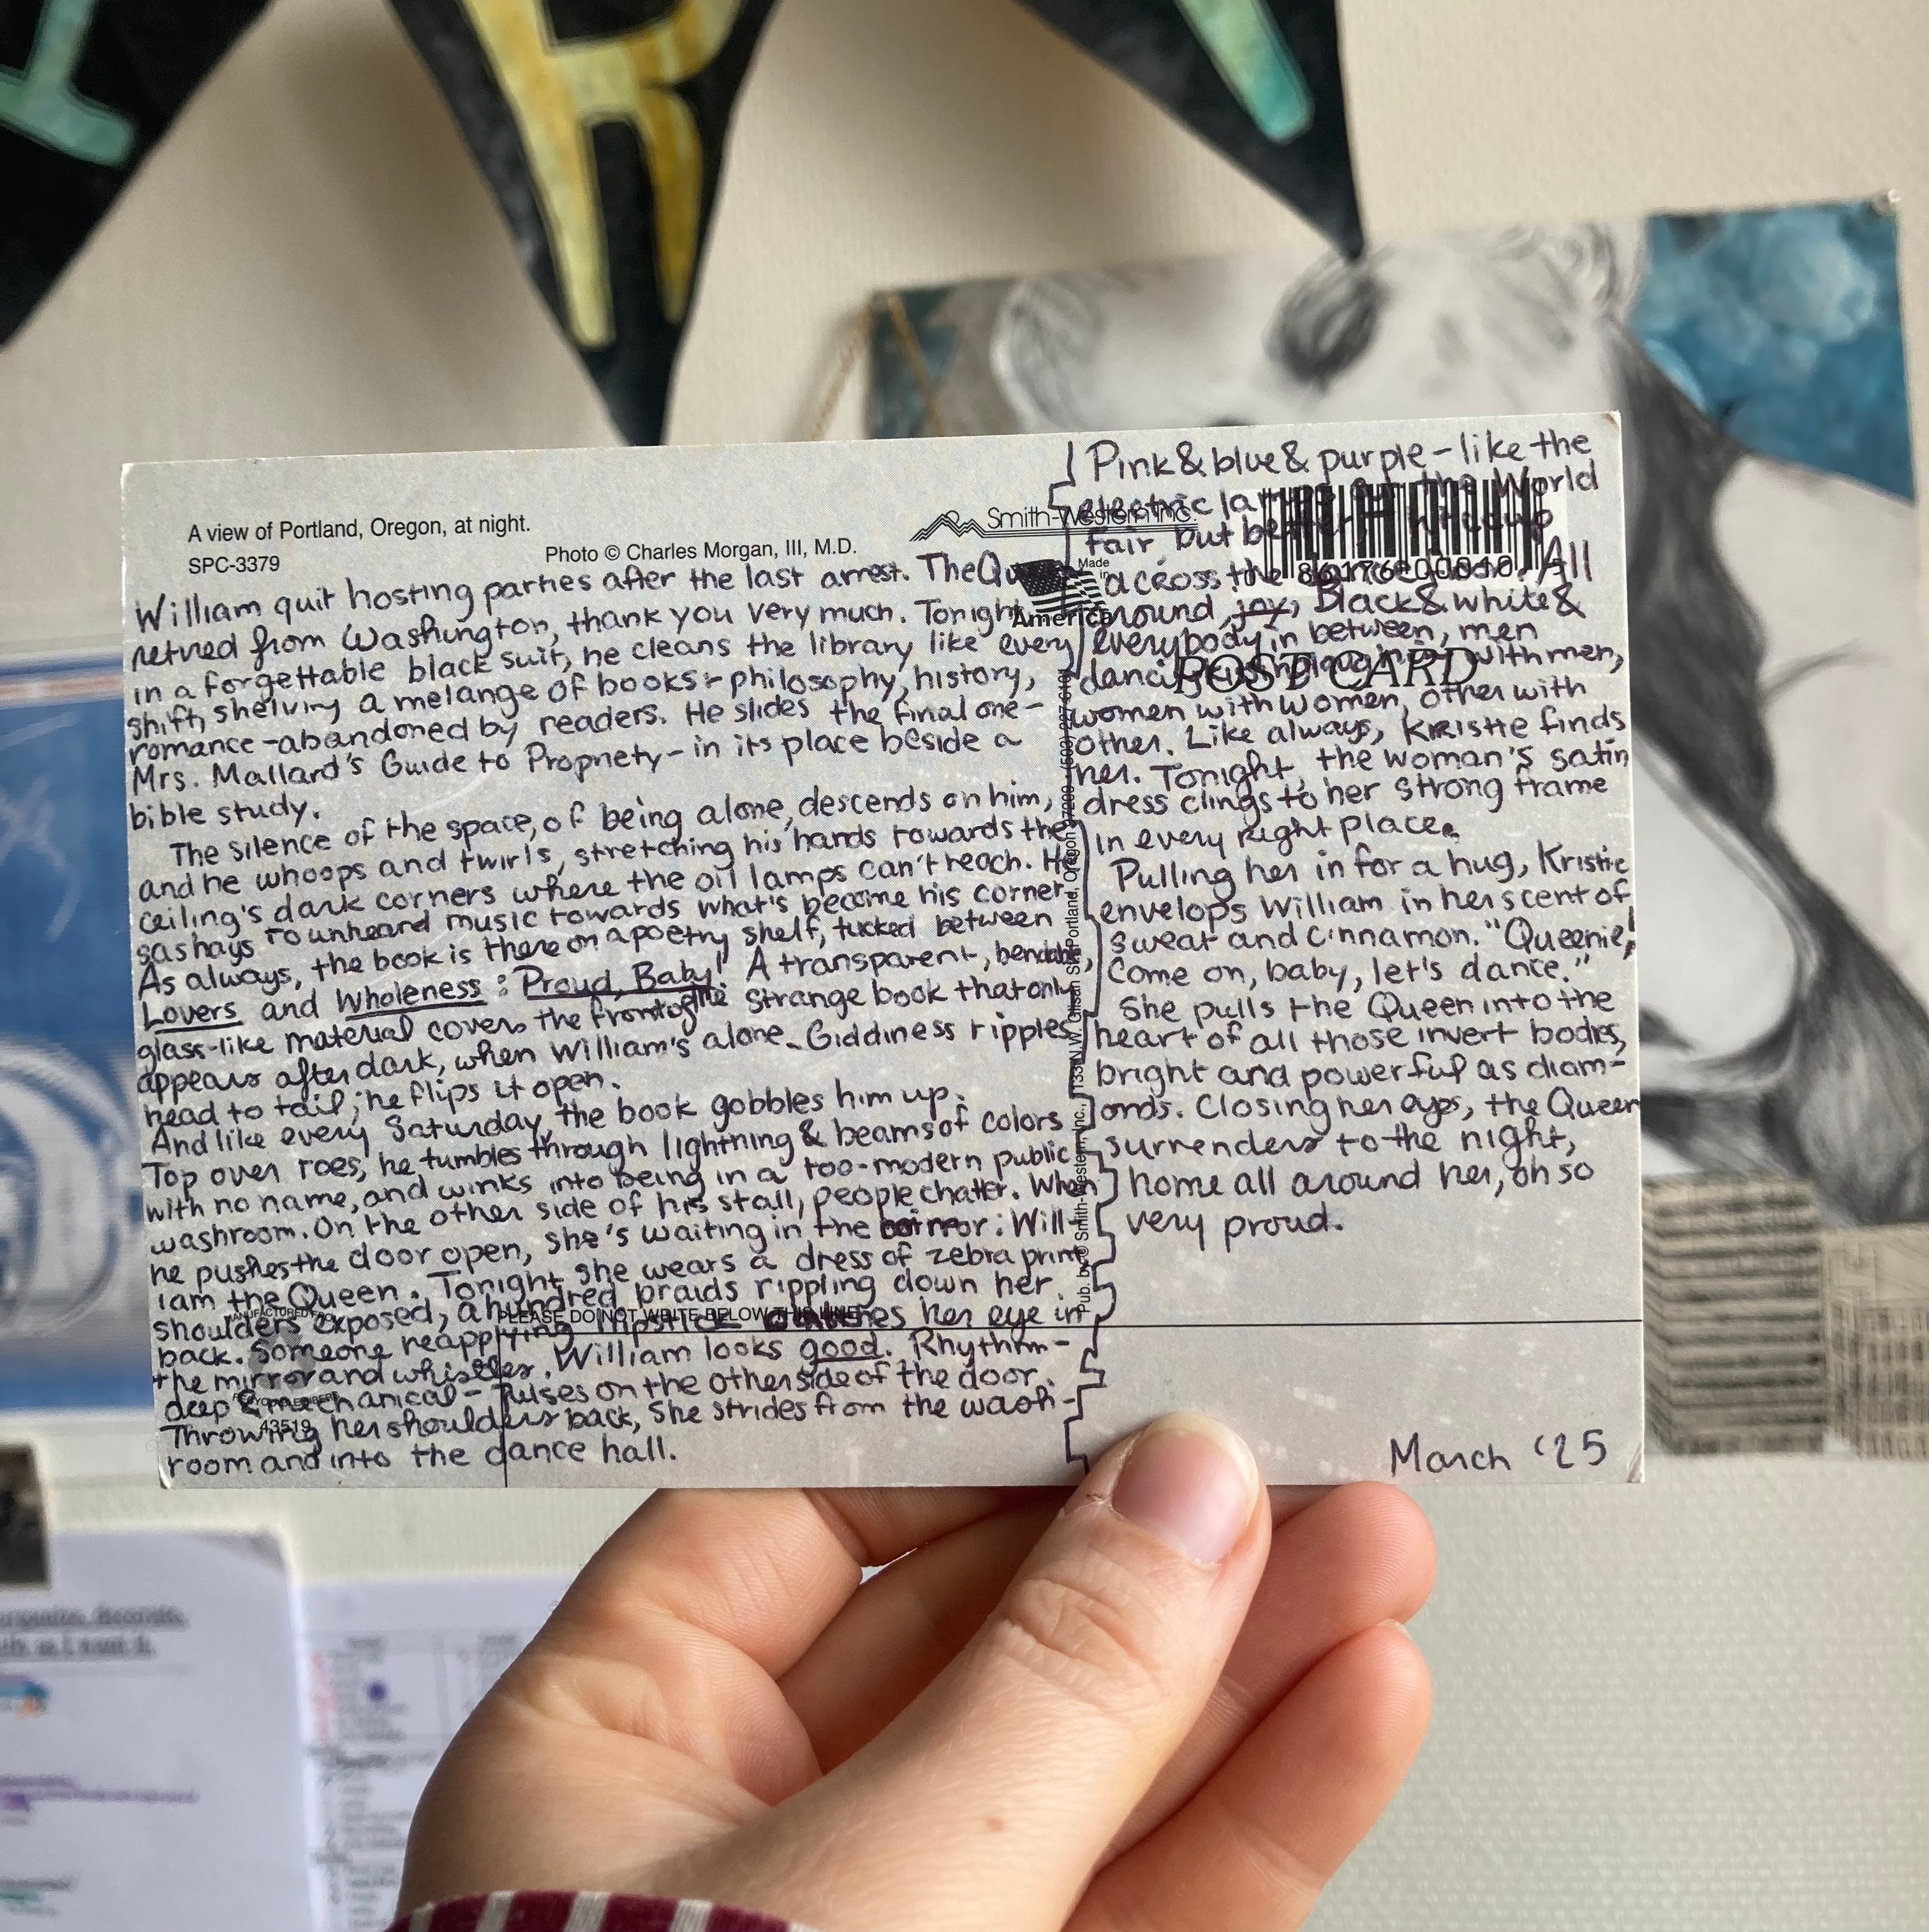 R
A view of Portland, Oregon, at night.
SPC-3379
Photo © Charles Morgan, III, M.D.
Smith-Western Inc.
Made
in
America
POST CARD
William quit hosting parties after the last arrest. The Qu
retired from Washington, thank you very much. Tonight
in a forgettable black suit, he cleans the library like every
shift, shelving a melange of books - philosophy, history,
romance - abandoned by readers. He slides the final one -
Mrs. Mallard's Guide to Propriety - in its place beside a
bible study.
The silence of the space, of being alone, descends on him,
and he whoops and twirls, stretching his hands towards the
ceiling's dark corners where the oil lamps can't reach. He
sashays to unheard music towards what's become his corner.
As always, the book is there on a poetry shelf, tucked between
Lovers and Wholeness: Proud, Baby! A transparent, bendable,
glass-like material covers the front of the strange book that only
appears after dark, when William's alone. Giddiness ripples
head to tail; he flips it open.
And like every Saturday, the book gobbles him up.
Top over toes, he tumbles through lightning & beams of colors
with no name, and winks into being in a too-modern public
washroom. On the other side of his stall, people chatter. When
he pushes the door open, she's waiting in the mirror: Will-
iam the Queen. Tonight, she wears a dress of zebra print,
shoulders exposed, a hundred braids rippling down her
back. Someone reapplying lipstick catches her eye in
the mirror and whistles. William looks good. Rhythm -
deep & mechanical - pulses on the other side of the door.
Throwing her shoulders back, she strides from the wash-
room and into the dance hall.
PLEASE DO NOT WRITE BELOW THIS LINE
43519
Pub. by © Smith-Western, Inc., 1133 N.W. Glisan St. Portland, Oregon 97209
Pink & blue & purple - like the
electric at the World
fair, but better
across the All
around, joy, Black & white &
everybody in between, men
dancing with men,
women with women, other with
other. Like always, Kristie finds
her. Tonight, the woman's satin
dress clings to her strong frame
in every right place.
Pulling her in for a hug, Kristie
envelops William in her scent of
sweat and cinnamon. "Queenie,
come on, baby, let's dance."
She pulls the Queen into the
heart of all those invert bodies,
bright and powerful as diam-
onds. Closing her eyes, the Queen
surrenders to the night,
home all around her, oh so
very proud.
March '25